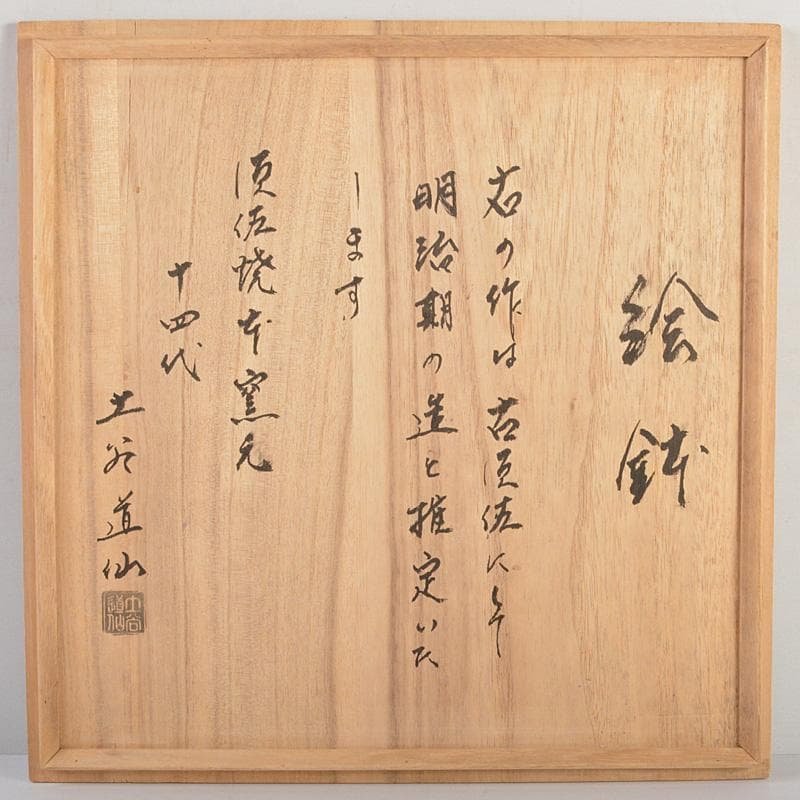 絵鉢
右の作は古須佐にして
明治期の造と推定いた
します
須佐焼本窯元
十四代
土谷道仙
土谷道仙